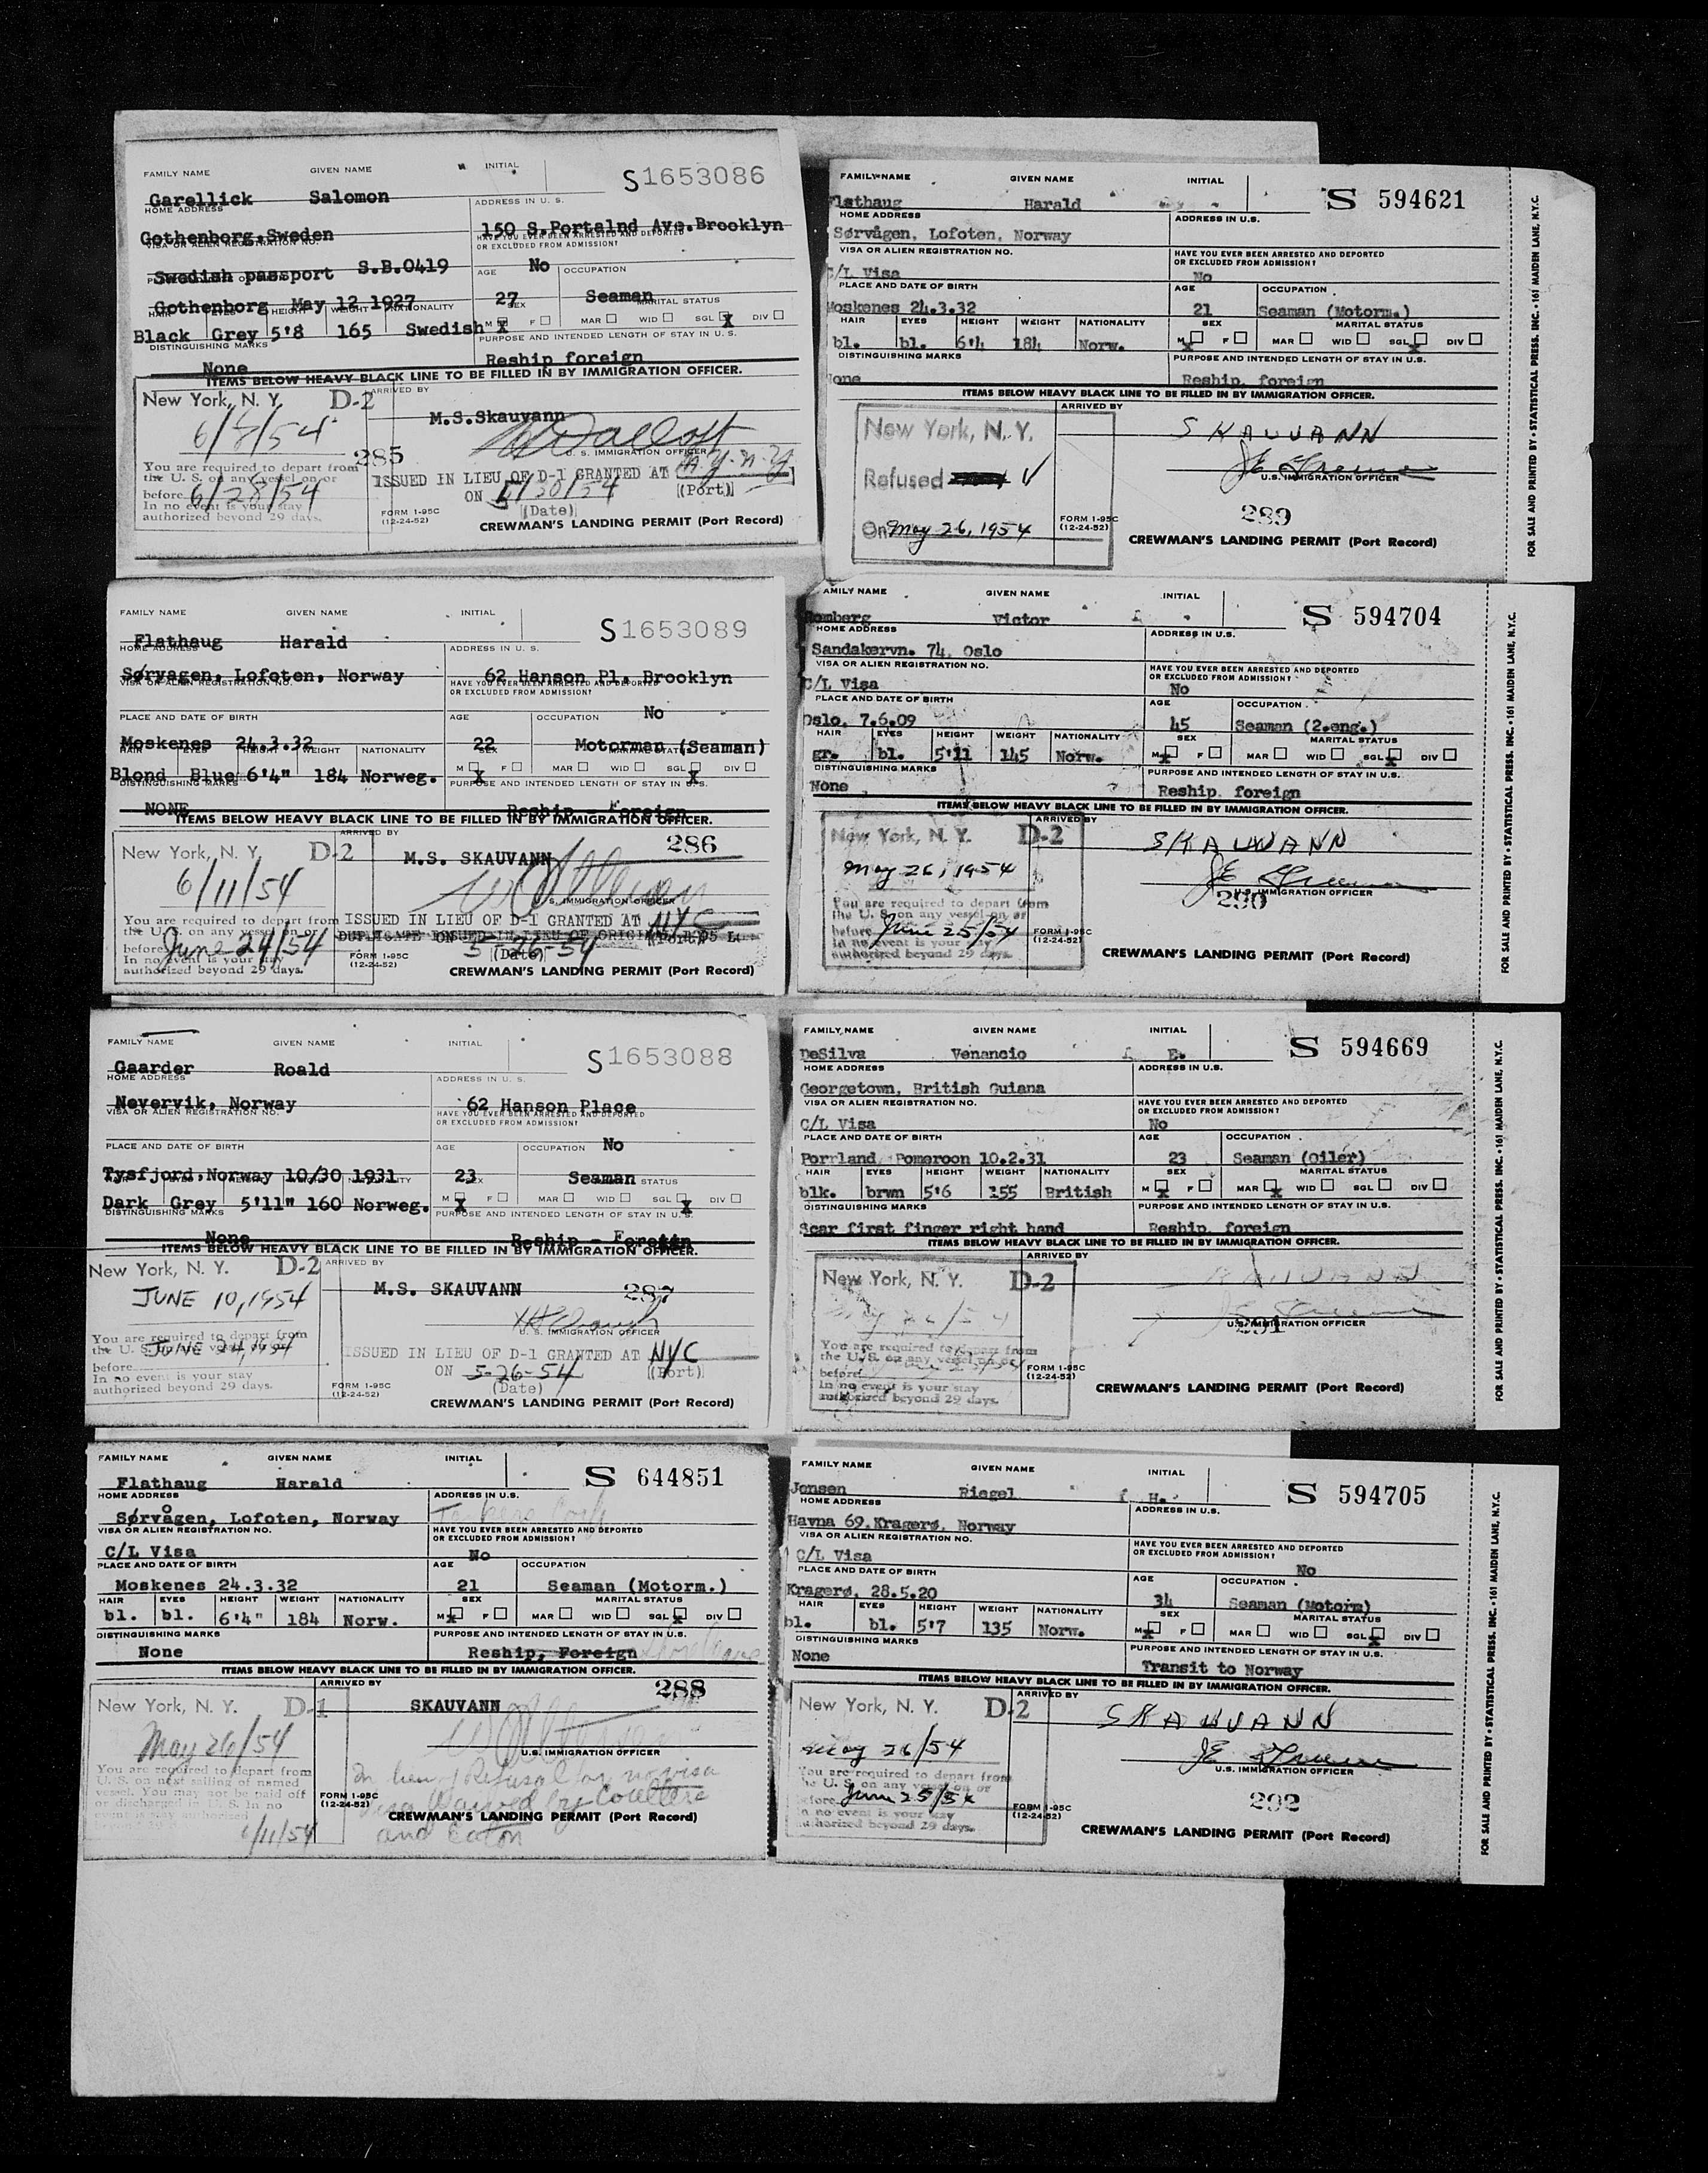 FAMILY NAME GIVEN NAME INITIAL
S1653086
Garellick Salomon
HOME ADDRESS ADDRESS IN U. S.
Gothenborg,Sweden 150 S.Portalnd Ave.Brooklyn
VISA OR ALIEN REGISTRATION NO. HAVE YOU EVER BEEN ARRESTED AND DEPORTED
OR EXCLUDED FROM ADMISSION?
Swedish passport S.B.0419 No
AGE OCCUPATION
Gothenborg May 12 1927 27 Seaman
HAIR EYES HEIGHT WEIGHT NATIONALITY SEX MARITAL STATUS
Black Grey 5'8 165 Swedish M X F MAR WID SGL X DIV
DISTINGUISHING MARKS PURPOSE AND INTENDED LENGTH OF STAY IN U. S.
None Reship foreign
ITEMS BELOW HEAVY BLACK LINE TO BE FILLED IN BY IMMIGRATION OFFICER.
New York, N. Y. D-2 ARRIVED BY
M.S.Skauvann
6/8/54
285 U. S. IMMIGRATION OFFICER
You are required to depart from
the U. S. on any vessel on or
before 6/28/54
In no event is your stay
authorized beyond 29 days.
ISSUED IN LIEU OF D-1 GRANTED AT N.Y.N.Y
ON 5/30/54 (Port)
(Date)
FORM 1-95C
(12-24-52)
CREWMAN'S LANDING PERMIT (Port Record)
FAMILY NAME GIVEN NAME INITIAL
S 594621
Flathaug Harald
HOME ADDRESS ADDRESS IN U.S.
Sørvågen, Lofoten, Norway
VISA OR ALIEN REGISTRATION NO. HAVE YOU EVER BEEN ARRESTED AND DEPORTED
OR EXCLUDED FROM ADMISSION?
C/L Visa No
PLACE AND DATE OF BIRTH AGE OCCUPATION
Moskenes 24.3.32 21 Seaman (Motorm.)
HAIR EYES HEIGHT WEIGHT NATIONALITY SEX MARITAL STATUS
bl. bl. 6'4 184 Norw. M X F MAR WID SGL X DIV
DISTINGUISHING MARKS PURPOSE AND INTENDED LENGTH OF STAY IN U.S.
None Reship. foreign
ITEMS BELOW HEAVY BLACK LINE TO BE FILLED IN BY IMMIGRATION OFFICER.
ARRIVED BY
New York, N. Y. SKAUVANN
Refused
U.S. IMMIGRATION OFFICER
289
On May 26, 1954
FORM 1-95C
(12-24-52)
CREWMAN'S LANDING PERMIT (Port Record)
FOR SALE AND PRINTED BY • STATISTICAL PRESS, INC. • 161 MAIDEN LANE, N.Y.C.
FAMILY NAME GIVEN NAME INITIAL
S1653089
Flathaug Harald
HOME ADDRESS ADDRESS IN U. S.
Sørvagen, Lofoten, Norway 62 Hanson Pl. Brooklyn
VISA OR ALIEN REGISTRATION NO. HAVE YOU EVER BEEN ARRESTED AND DEPORTED
OR EXCLUDED FROM ADMISSION?
No
PLACE AND DATE OF BIRTH AGE OCCUPATION
Moskenes 24.3.32 22 Motorman (Seaman)
HAIR EYES HEIGHT WEIGHT NATIONALITY SEX MARITAL STATUS
Blond Blue 6'4" 184 Norweg. M X F MAR WID SGL X DIV
DISTINGUISHING MARKS PURPOSE AND INTENDED LENGTH OF STAY IN U.S.
NONE Reship - Foreign
ITEMS BELOW HEAVY BLACK LINE TO BE FILLED IN BY IMMIGRATION OFFICER.
ARRIVED BY
New York, N. Y. D-2 M.S. SKAUVANN 286
6/11/54
U. S. IMMIGRATION OFFICER
You are required to depart from
the U. S. on any vessel on or
before June 24/54
In no event is your stay
authorized beyond 29 days.
ISSUED IN LIEU OF D-1 GRANTED AT NYC
DUPLICATE ISSUED IN LIEU OF ORIGINAL I-95
ON 5-26-54 (Port)
(Date)
FORM 1-95C
(12-24-52)
CREWMAN'S LANDING PERMIT (Port Record)
FAMILY NAME GIVEN NAME INITIAL
S 594704
Romberg Victor
HOME ADDRESS ADDRESS IN U.S.
Sandakervn. 74, Oslo
VISA OR ALIEN REGISTRATION NO. HAVE YOU EVER BEEN ARRESTED AND DEPORTED
OR EXCLUDED FROM ADMISSION?
C/L Visa No
PLACE AND DATE OF BIRTH AGE OCCUPATION
Oslo, 7.6.09 45 Seaman (2.eng.)
HAIR EYES HEIGHT WEIGHT NATIONALITY SEX MARITAL STATUS
gr. bl. 5'11 145 Norw. M X F MAR WID SGL X DIV
DISTINGUISHING MARKS PURPOSE AND INTENDED LENGTH OF STAY IN U.S.
None Reship. foreign
ITEMS BELOW HEAVY BLACK LINE TO BE FILLED IN BY IMMIGRATION OFFICER.
ARRIVED BY
New York, N. Y. D-2 SKAUVANN
May 26, 1954
U.S. IMMIGRATION OFFICER
290
You are required to depart from
the U. S. on any vessel on or
before June 25/54
In no event is your stay
authorized beyond 29 days.
FORM 1-95C
(12-24-52)
CREWMAN'S LANDING PERMIT (Port Record)
FOR SALE AND PRINTED BY • STATISTICAL PRESS, INC. • 161 MAIDEN LANE, N.Y.C.
FAMILY NAME GIVEN NAME INITIAL
S1653088
Gaarder Roald
HOME ADDRESS ADDRESS IN U. S.
Nevervik, Norway 62 Hanson Place
VISA OR ALIEN REGISTRATION NO. HAVE YOU EVER BEEN ARRESTED AND DEPORTED
OR EXCLUDED FROM ADMISSION?
No
PLACE AND DATE OF BIRTH AGE OCCUPATION
Tysfjord,Norway 10/30 1931 23 Seaman
HAIR EYES HEIGHT WEIGHT NATIONALITY SEX MARITAL STATUS
Dark Grey 5'11" 160 Norweg. M X F MAR WID SGL X DIV
DISTINGUISHING MARKS PURPOSE AND INTENDED LENGTH OF STAY IN U.S.
None Reship - Foreign
ITEMS BELOW HEAVY BLACK LINE TO BE FILLED IN BY IMMIGRATION OFFICER.
New York, N. Y. D-2 ARRIVED BY
JUNE 10, 1954 M.S. SKAUVANN 287
U. S. IMMIGRATION OFFICER
You are required to depart from
the U. S. on any vessel on or
JUNE 24, 1954
before
In no event is your stay
authorized beyond 29 days.
ISSUED IN LIEU OF D-1 GRANTED AT NYC
ON 5-26-54 (Port)
(Date)
FORM 1-95C
(12-24-52)
CREWMAN'S LANDING PERMIT (Port Record)
FAMILY NAME GIVEN NAME INITIAL
S 594669
DeSilva Venancio E.
HOME ADDRESS ADDRESS IN U.S.
Georgetown, British Guiana
VISA OR ALIEN REGISTRATION NO. HAVE YOU EVER BEEN ARRESTED AND DEPORTED
OR EXCLUDED FROM ADMISSION?
C/L Visa No
PLACE AND DATE OF BIRTH AGE OCCUPATION
Porrland Pomeroon 10.2.31 23 Seaman (Oiler)
HAIR EYES HEIGHT WEIGHT NATIONALITY SEX MARITAL STATUS
blk. brwn 5'6 155 British M X F MAR X WID SGL DIV
DISTINGUISHING MARKS PURPOSE AND INTENDED LENGTH OF STAY IN U.S.
Scar first finger right hand Reship. foreign
ITEMS BELOW HEAVY BLACK LINE TO BE FILLED IN BY IMMIGRATION OFFICER.
ARRIVED BY
New York, N. Y. D-2 SKAUVANN
May 26/54
U.S. IMMIGRATION OFFICER
291
You are required to depart from
the U. S. on any vessel on or
before
In no event is your stay
authorized beyond 29 days.
FORM 1-95C
(12-24-52)
CREWMAN'S LANDING PERMIT (Port Record)
FOR SALE AND PRINTED BY • STATISTICAL PRESS, INC. • 161 MAIDEN LANE, N.Y.C.
FAMILY NAME GIVEN NAME INITIAL
S 644851
Flathaug Harald
HOME ADDRESS ADDRESS IN U.S.
Sørvågen, Lofoten, Norway
VISA OR ALIEN REGISTRATION NO. HAVE YOU EVER BEEN ARRESTED AND DEPORTED
OR EXCLUDED FROM ADMISSION?
C/L Visa No
PLACE AND DATE OF BIRTH AGE OCCUPATION
Moskenes 24.3.32 21 Seaman (Motorm.)
HAIR EYES HEIGHT WEIGHT NATIONALITY SEX MARITAL STATUS
bl. bl. 6'4" 184 Norw. M X F MAR WID SGL X DIV
DISTINGUISHING MARKS PURPOSE AND INTENDED LENGTH OF STAY IN U.S.
None Reship, Foreign Shore leave
ITEMS BELOW HEAVY BLACK LINE TO BE FILLED IN BY IMMIGRATION OFFICER.
ARRIVED BY
New York, N. Y. D-1 SKAUVANN 288
May 26/54
U.S. IMMIGRATION OFFICER
You are required to depart from
U. S. on next sailing of named
vessel. You may not be paid off
or discharged in U. S. In no
6/11/54
In lieu of Refusal for no visa
Visa Waived by Coulters
and Eaton
FORM 1-95C
(12-24-52)
CREWMAN'S LANDING PERMIT (Port Record)
FAMILY NAME GIVEN NAME INITIAL
S 594705
Jensen Riegel H.
HOME ADDRESS ADDRESS IN U.S.
Havna 69, Kragerø, Norway
VISA OR ALIEN REGISTRATION NO. HAVE YOU EVER BEEN ARRESTED AND DEPORTED
OR EXCLUDED FROM ADMISSION?
C/L Visa No
PLACE AND DATE OF BIRTH AGE OCCUPATION
Kragerø, 28.5.20 34 Seaman (Motorm)
HAIR EYES HEIGHT WEIGHT NATIONALITY SEX MARITAL STATUS
bl. bl. 5'7 135 Norw. M X F MAR WID SGL X DIV
DISTINGUISHING MARKS PURPOSE AND INTENDED LENGTH OF STAY IN U.S.
None Transit to Norway
ITEMS BELOW HEAVY BLACK LINE TO BE FILLED IN BY IMMIGRATION OFFICER.
ARRIVED BY
New York, N. Y. D-2 SKAUVANN
May 26/54
U.S. IMMIGRATION OFFICER
292
You are required to depart from
the U. S. on any vessel on or
before June 25/54
In no event is your stay
authorized beyond 29 days.
FORM 1-95C
(12-24-52)
CREWMAN'S LANDING PERMIT (Port Record)
FOR SALE AND PRINTED BY • STATISTICAL PRESS, INC. • 161 MAIDEN LANE, N.Y.C.